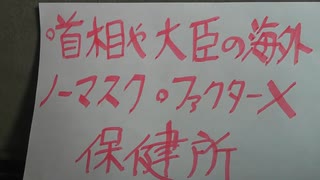 ○首相や大臣の海外
ノーマスク○ファクターX
保健所